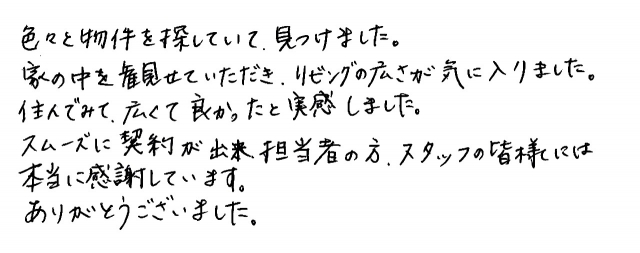 色々と物件を探していて、見つけました。
家の中を観せていただき、リビングの広さが気に入りました。
住んでみて、広くて良かったと実感しました。
スムーズに契約が出来、担当者の方、スタッフの皆様には
本当に感謝しています。
ありがとうございました。